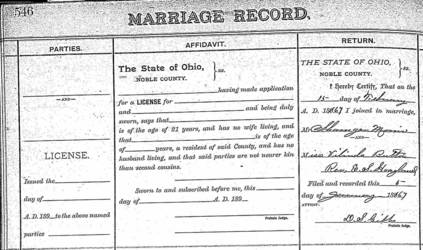 546
MARRIAGE RECORD.
PARTIES.
—AND—
LICENSE.
Issued the
day of
A. D. 189 to the above named
parties
AFFIDAVIT.
The State of Ohio, } ss.
NOBLE COUNTY.
having made application
for a LICENSE for
and and being duly
sworn, says that
is of the age of 21 years, and has no wife living, and
that is of the age
of years, a resident of said County, and has no
husband living, and that said parties are not nearer kin
than second cousins.
Sworn to and subscribed before me, this
day of A. D. 189
Probate Judge.
RETURN.
THE STATE OF OHIO, } ss.
NOBLE COUNTY.
I Hereby Certify, That on the
15 day of
A. D. 1867 I joined in marriage,
Mr
—AND—
Miss
Rev.
Filed and recorded this 5
day of 1867
ATTEST:
Probate Judge.